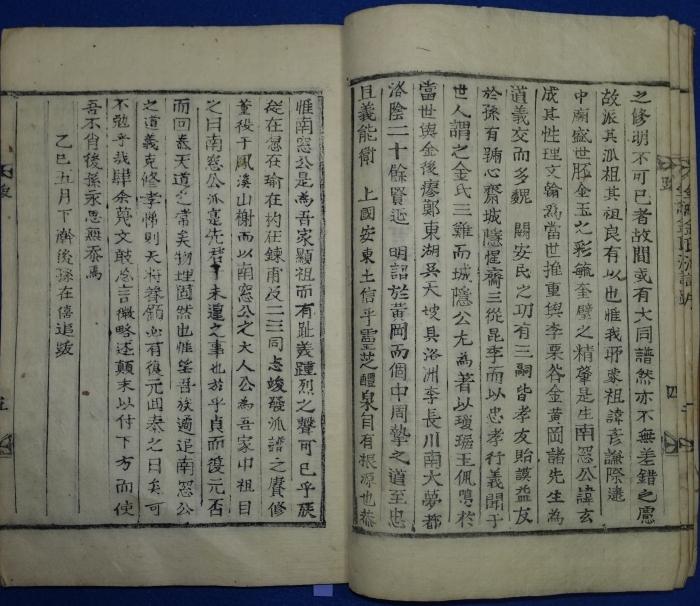 之修明不可已者故間或有大同譜然亦不無差錯之慮
故派其派祖其祖良有以也惟我 祖諱彦謙際遭
中廟盛世胚金玉之彩毓奎璧之精肇是生南窓公諱玄
成其性理文翰爲當世推重與李栗谷金黃岡諸先生爲
道義交而多 關安民之功有三嗣皆孝友貽謨益友
於孫有 心齋城隱惺齋三從昆季而以忠孝行義聞于
世人謂之金氏三 而城隱公尤爲著以 琚玉佩鳴於
當世與金後瘳鄭東湖吳天坡具洛洲李長川南大夢都
洛陰二十餘賢迎 明詔於黃岡而個中周摯之道至忠
且義能衛 上國安東土信乎靈芝醴泉自有根源也恭
惟南窓公是爲吾家顯祖而有趾美踵烈之聲可已乎族
從在 在瑜在均在鍊甫及二三同志竣 派譜之 修
董役于鳳溪山榭而以南窓公之大人公爲吾家中祖目
之曰南窓公派 先 未遑之事也於乎貞而復元否
而回泰天道之常矣物理固然也惟 吾族適追南窓公
之道義克修孝悌則天將 必有復元回泰之日矣可
不勉乎哉肆余蔑文敢忘言微略述顚末以付下方而使
吾不肖後孫永思無忝焉
乙巳五月下澣後孫在僖追跋
跋
五
四